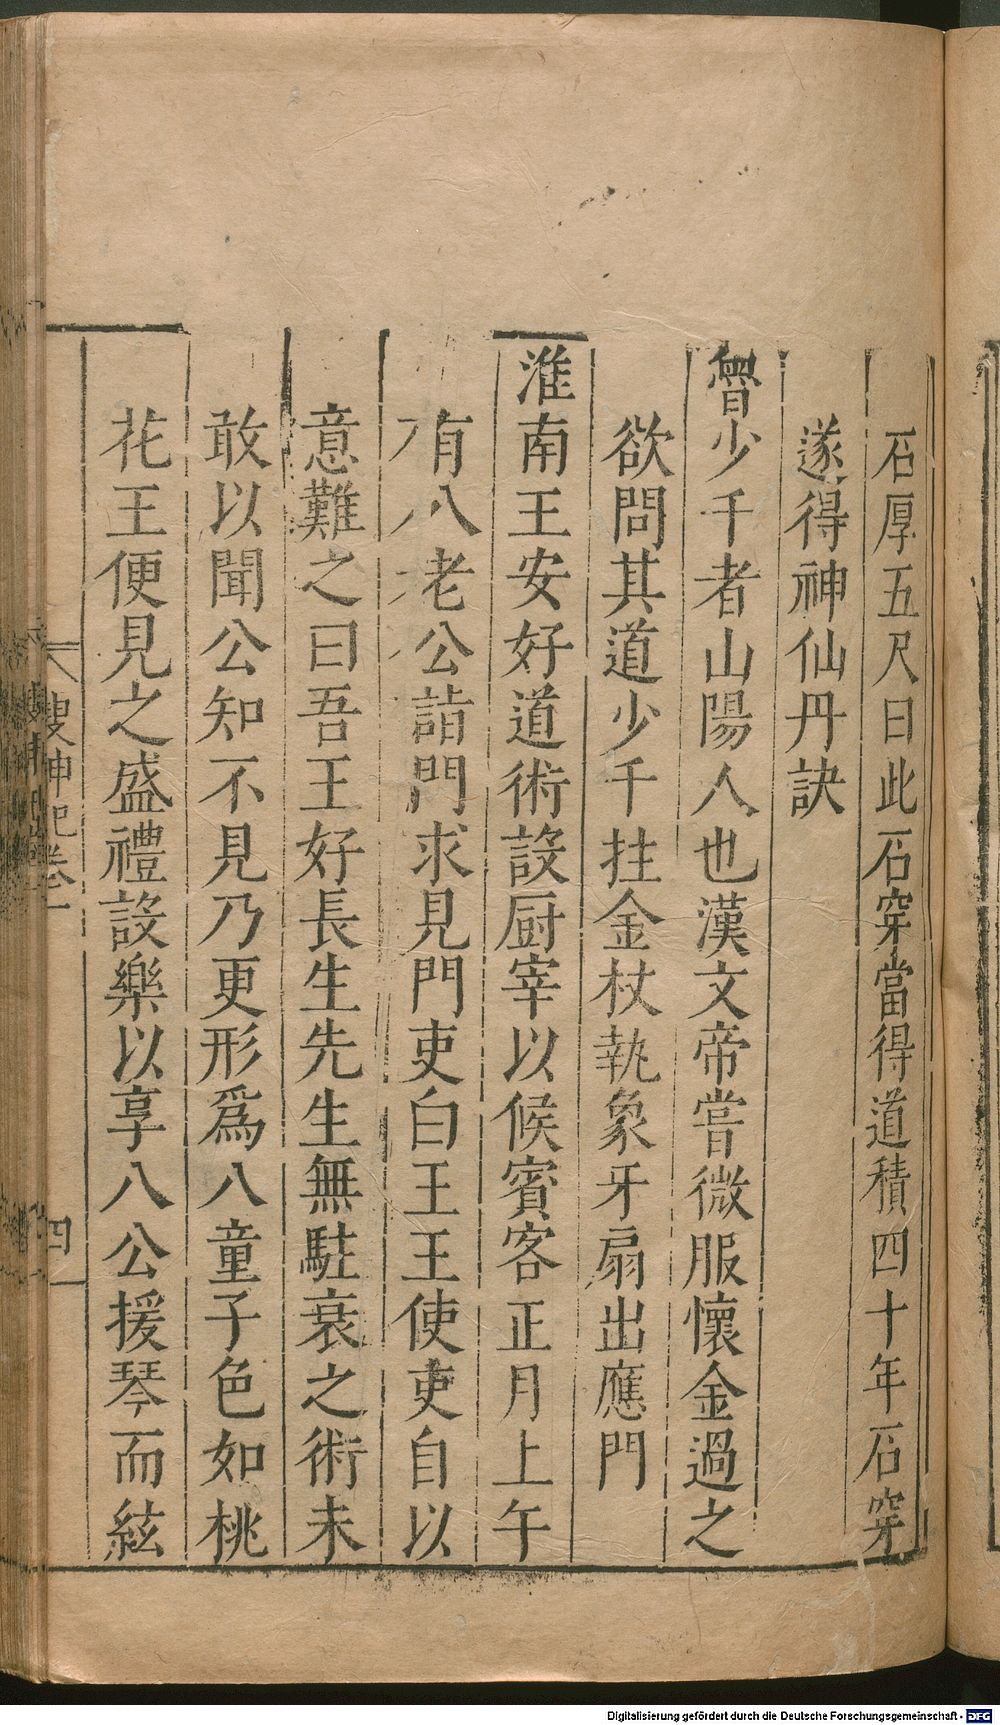 石厚五尺曰此石穿當得道積四十年石穿
遂得神仙丹訣
少千者山陽人也漢文帝嘗微服懷金過之
欲問其道少千拄金杖執象牙扇出應門
淮南王安好道術設厨宰以候賓客正月上午
有八老公詣門求見門吏白王王使吏自以
意難之曰吾王好長生先生無駐衰之術未
敢以聞公知不見乃更形爲八童子色如桃
花王便見之盛禮設樂以享八公援琴而絃
搜神記卷一
四
Digitalisierung gefördert durch die Deutsche Forschungsgemeinschaft - DFG